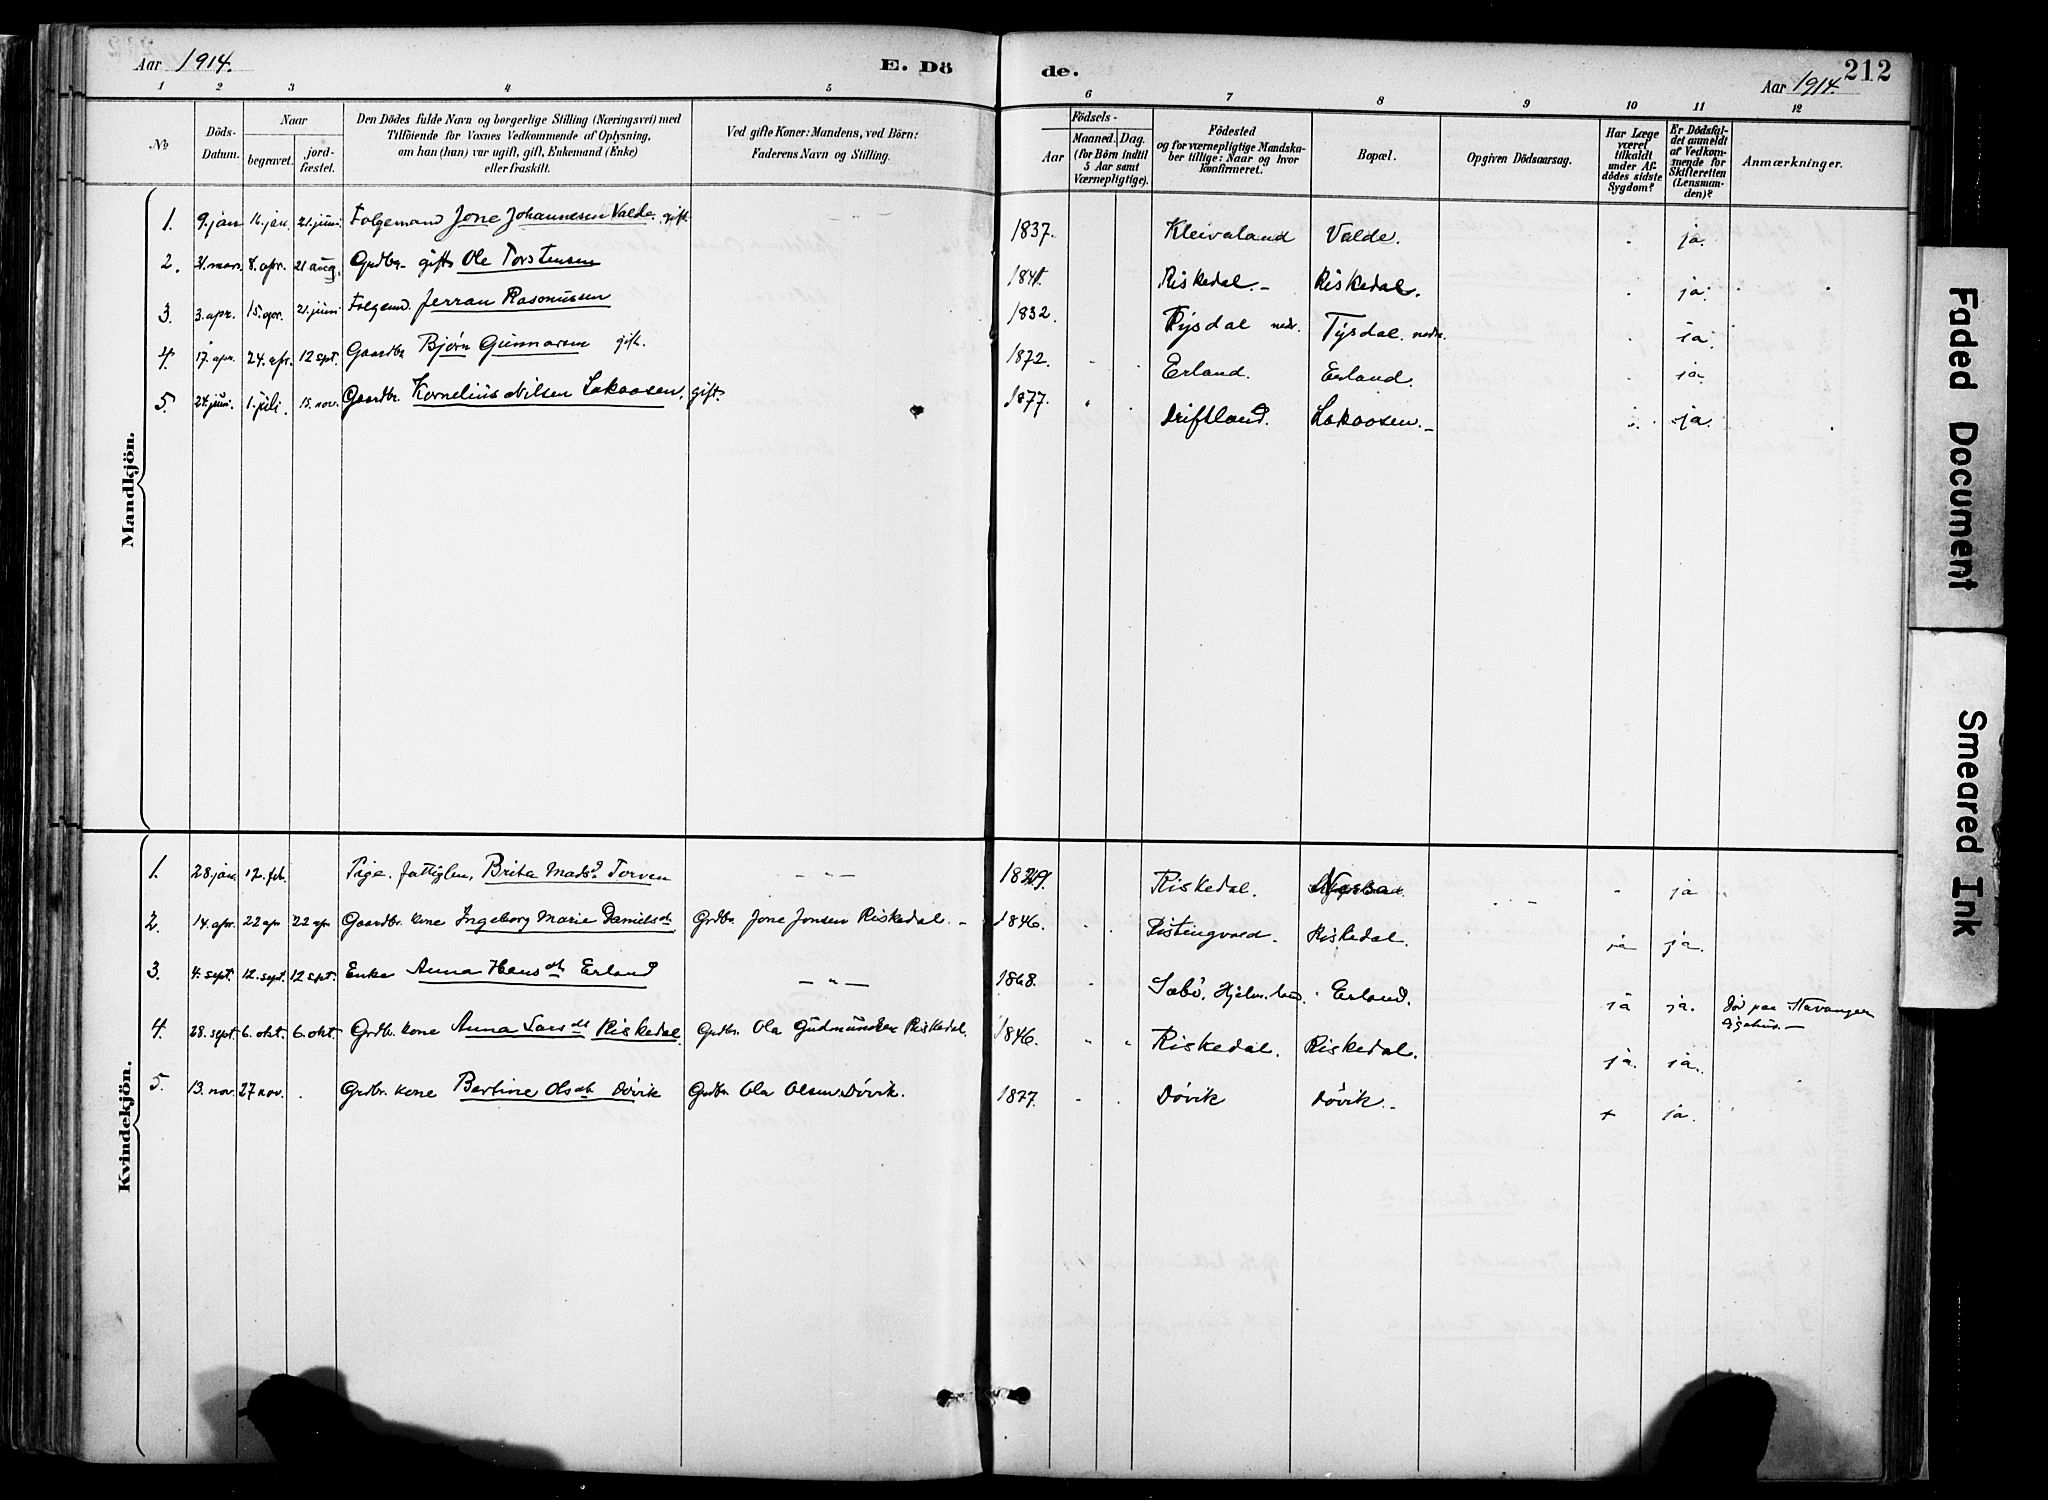 Aar 1914. E. Dö de. Aar 1914. 212
1 2 3 4 5 6 7 8 9 10 11 12
No
Döds-Datum.
Naar
begravet.
jord-fæstet.
Den Dödes fulde Navn og borgerlige Stilling (Næringsvei) med
Tilföiende for Voxnes Vedkommende af Oplysning,
om han (hun) var ugift, gift, Enkemand (Enke)
eller fraskilt.
Ved gifte Koner: Mandens, ved Börn:
Faderens Navn og Stilling.
Födsels-
Aar
Maaned. Dag.
(for Börn indtil
5 Aar samt
Værnepligtige).
Födested
og for værnepligtige Mandska-
ber tillige: Naar og hvor
konfirmeret.
Bopæl.
Opgiven Dödsaarsag.
Har Læge
været
tilkaldt
under Af-
dödes sidste
Sygdom?
Er Dödsfal-
det anmeldt
af Vedkom-
mende for
Skifteretten
(Lensman-
den)?
Anmærkninger.
Mandkjön.
1. 9. jan 16. jan 21. juni Folgemand Jone Johannesen Valde. gift 1837. Kleivaland Valde. ja.
2. 31. mars 8. apr. 21 aug. Grdbr. gift Ole Torstensen Riskedal. Riskedal. ja.
3. 3. apr. 15. apr. 21. juni Folgemd. Jerran Rasmussen 1832. Tysdal nedr. Tysdal nedr. ja.
4. 17. apr. 24. apr. 12 sept. Gaardbr Bjørn Gunnarsen gift. 1872. Erland. Erland. ja.
5. 24. juni. 1. juli. 15. nov. Gaardbr. Kornelius Nilsen Lakaasen, gift. 1877. Driftland. Lakaasen. ja.
Kvindekjön.
1. 28 jan. 12. feb. Pige. fattiglem, Brita Madsd. Torven Riskedal. ja
2. 14. apr. 22 apr 22 apr Gaardbr. kone Ingeborg Marie Danielsdt. Grdbr. Jone Jonsen Riskedal. 1846. Riskedal. ja ja.
3. 4. sept. 12. sept. 12 sept. Enke Anna Hansdt. Erland 1868. Sæbö, Erland. ja ja. Död paa Stavanger
sygehus.
4. 28. sept. 6. okt. 6. okt. Grdbr. kone Anna Larsdt. Riskedal. Grdbr. Ola Gudmundsen Riskedal. 1846. Riskedal. Riskedal. ja. ja.
5. 13. nov. 27 nov. Grdbr. kone Bertine Olsdt. Døvik Grdbr Ola Olsen Døvik. 1877. Døvik Døvik. + ja.
Faded Document
Smeared Ink